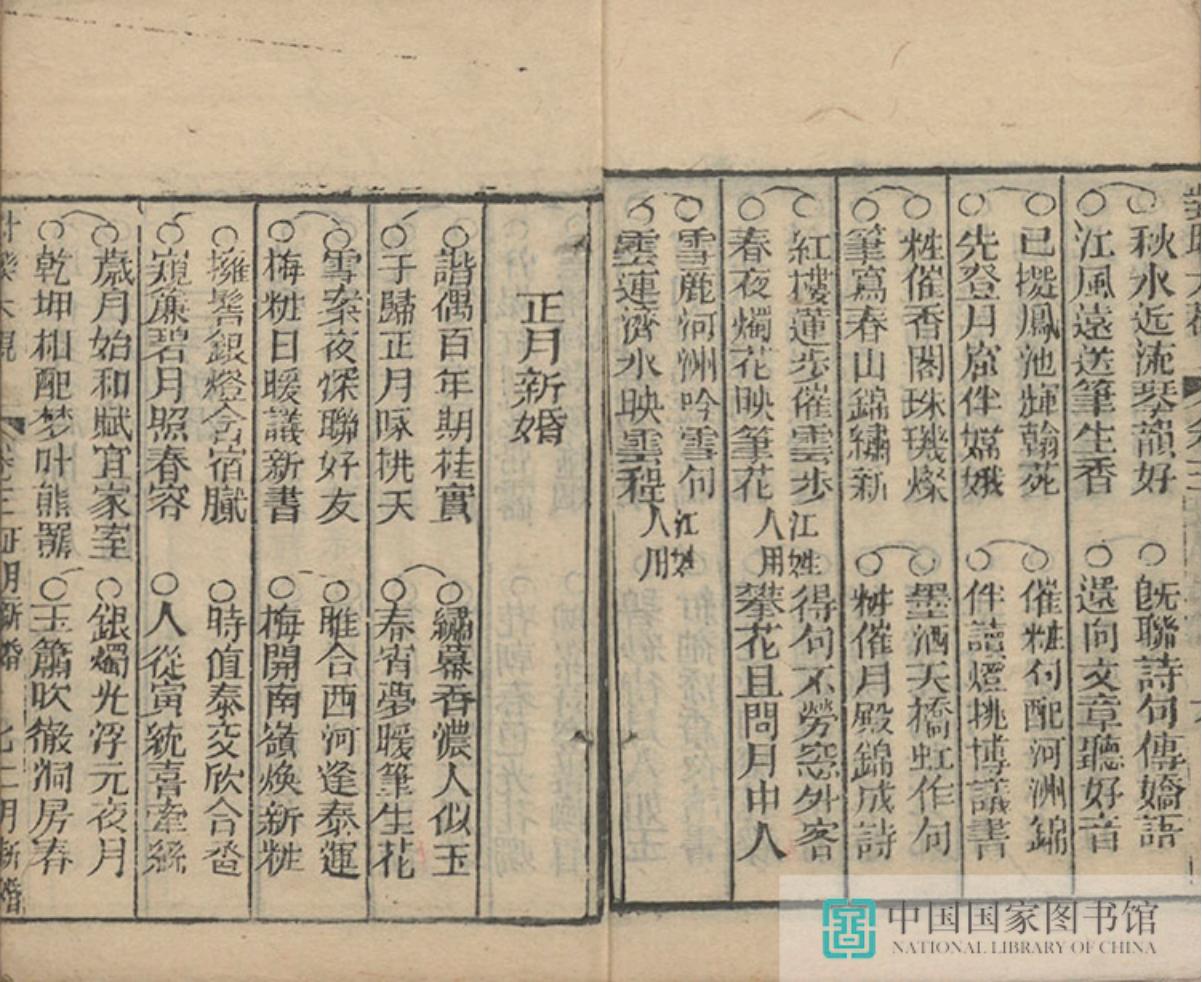 秋水近流琴韻好　既聯詩句傳嬌語
江風遠送筆生香　還向文章聽好音
已擬鳳池輝翰苑　催粧句配河洲錦
先登月窟伴嫦娥　伴讀燈挑博議書
粧催香閣珠璣燦　墨洒天橋虹作句
筆寫春山錦繡新　粧催月殿錦成詩
紅樓蓮步催雲步　江姓　得句不勞窓外客
春夜燭花映筆花　人用　攀花且問月中人
雪麗河洲吟雪句　江姓
雲連濟水映雲程　人用
正月新婚
諧偶百年期桂實　繡幕香濃人似玉
于歸正月咏桃夭　春宵夢暖筆生花
雪案夜深聯好友　雎合西河逢泰運
梅粧日暖議新書　梅開南嶺煥新粧
擁髻銀燈合宿膩　時值泰交欣合卺
窺簾碧月照春容　人從寅統喜牽絲
歲月始和賦宜家室　銀燭光浮元夜月
乾坤相配梦叶熊羆　玉簫吹徹洞房春
卷三　正月新婚　七　二月新婚
中国国家图书馆
NATIONAL LIBRARY OF CHINA